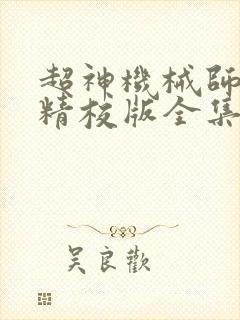 超神機械師
精校版全集
吴良歡